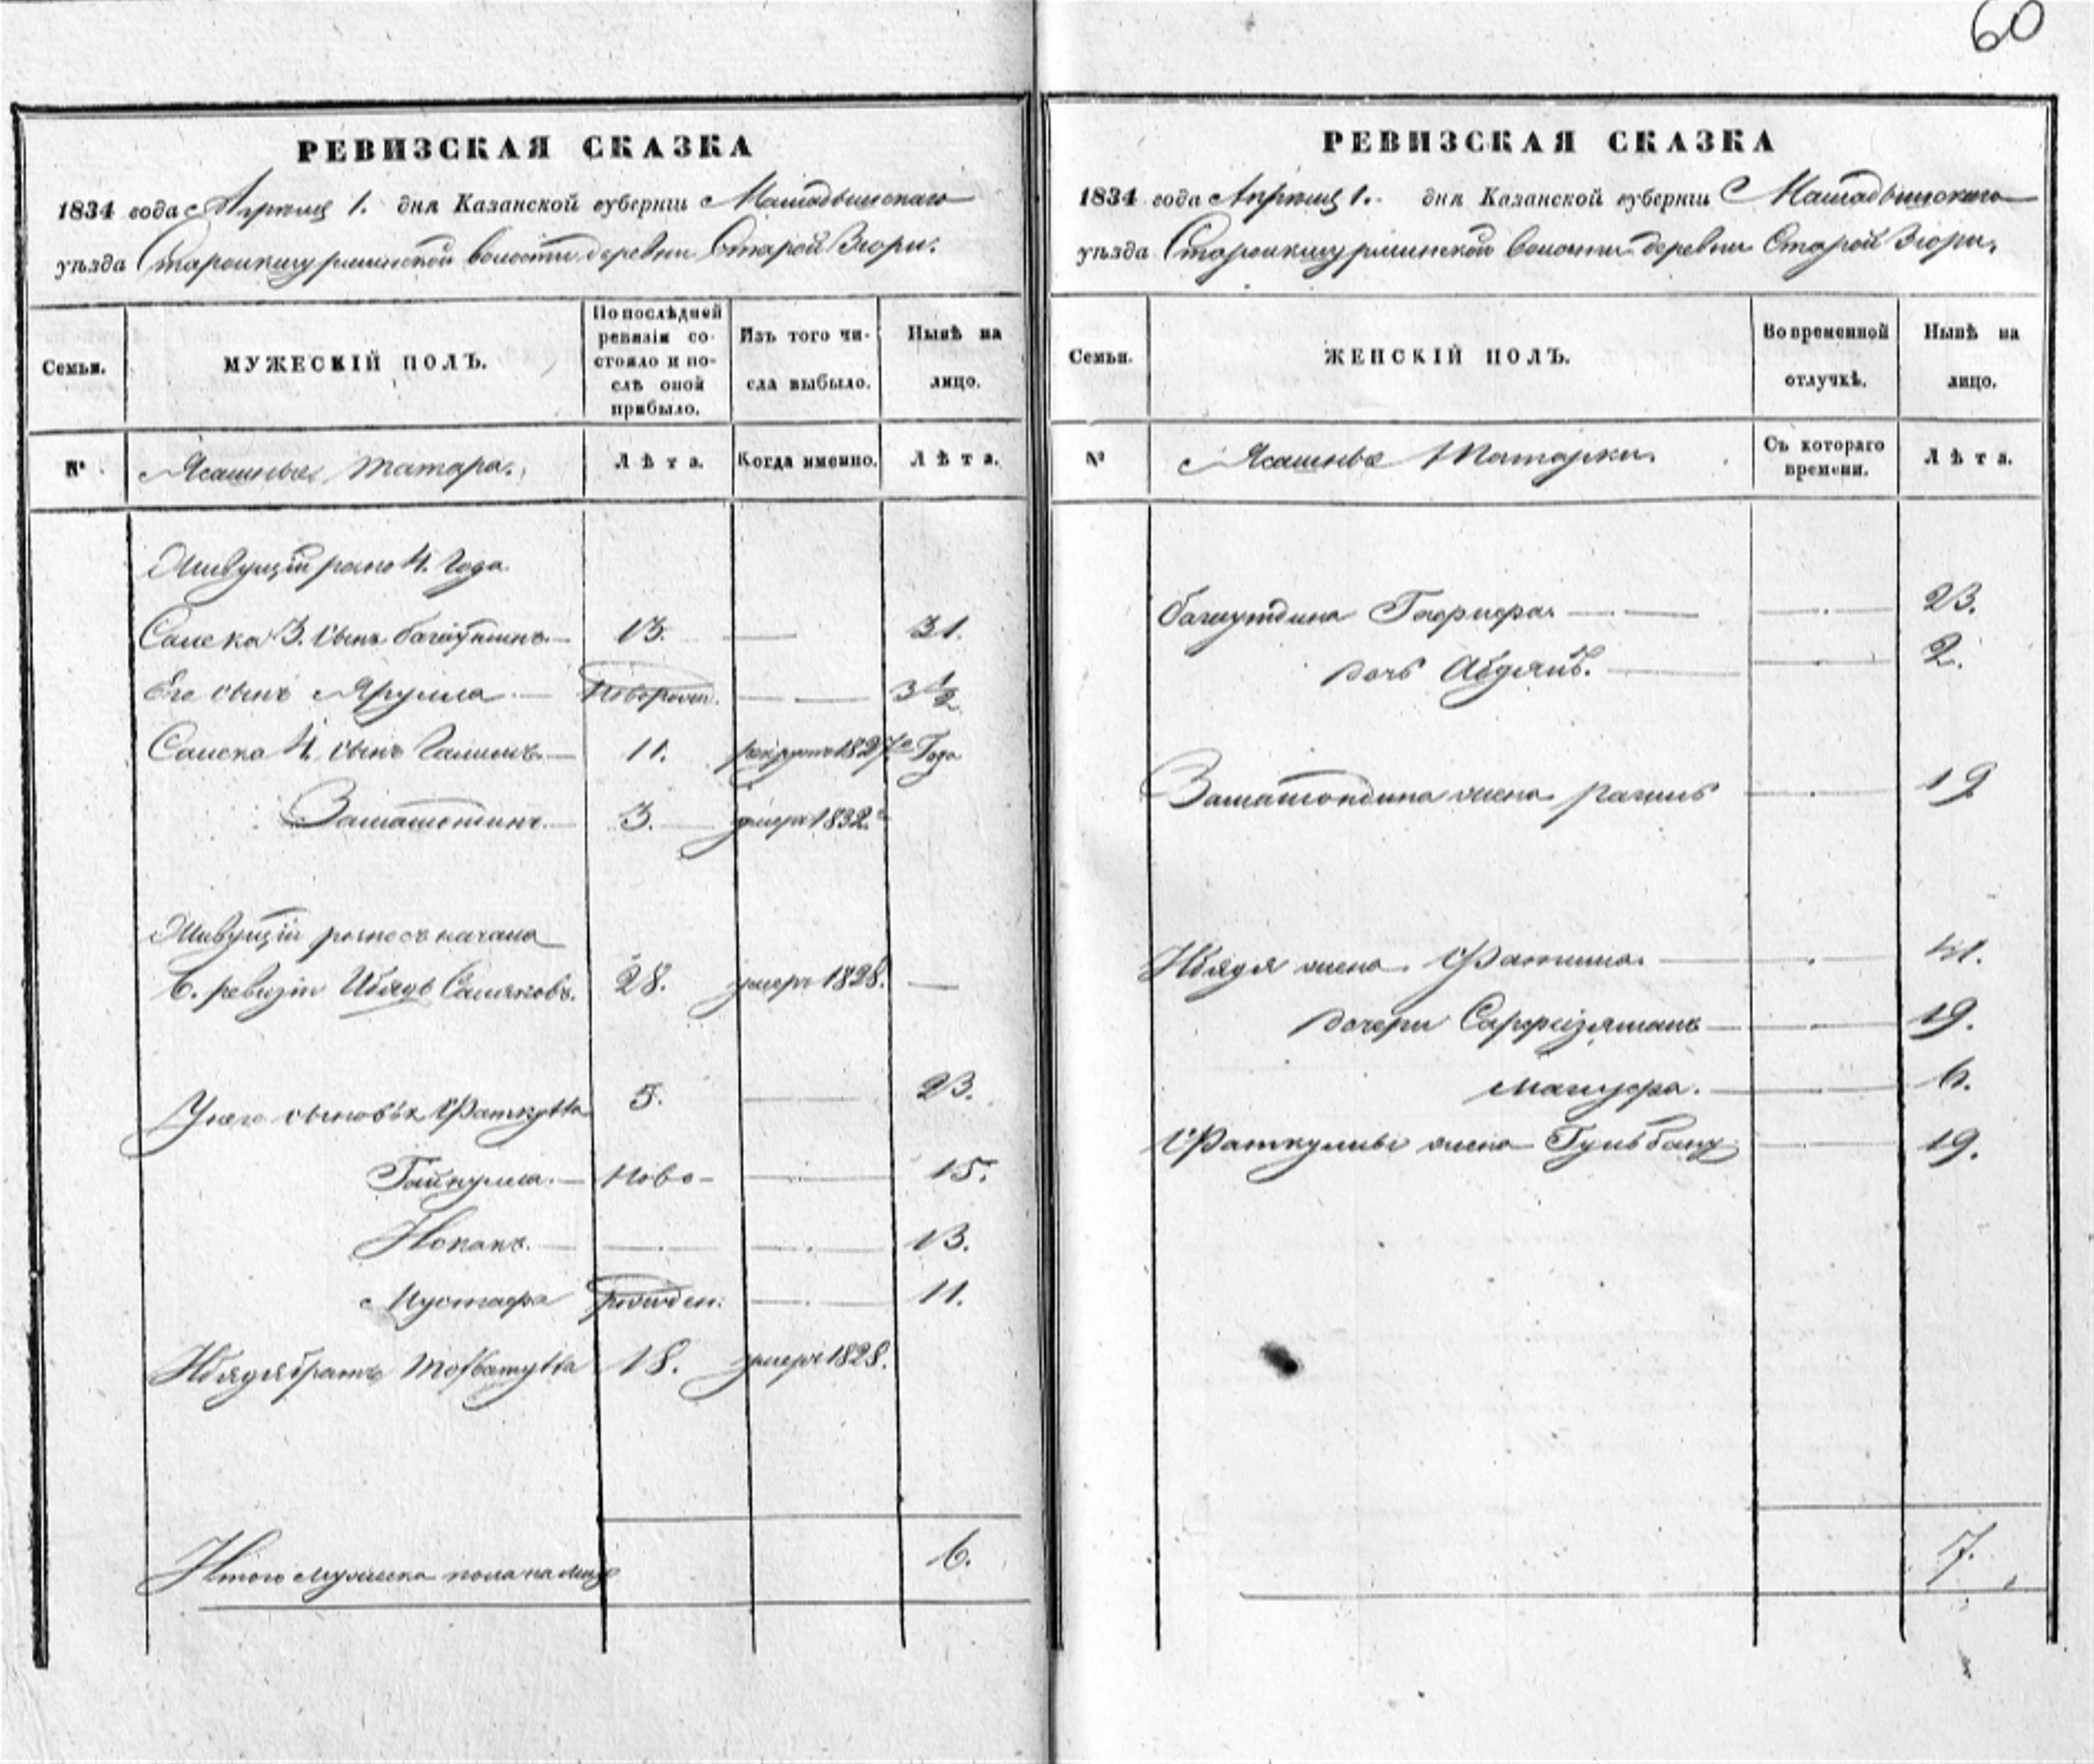 60
РЕВИЗСКАЯ СКАЗКА
1834 года Апреля 1. дня Казанской губернiи Мамадышскаго
уѣзда Старокишурминской волости деревни Старой Зюри.
Семьи.
МУЖЕСКІЙ ПОЛЪ.
По послѣдней ревизіи состояло и послѣ оной прибыло.
Изъ того числа выбыло.
Нынѣ на лицо.
№ Ясашные татара. Лѣта. Когда именно. Лѣта.
Живущiй розно 4. Года
3. сынъ Багаутинъ 13. 31.
Его сынъ Ярулла Новорожд. 3 1/2
4. сынъ Галимъ 11. рекрутъ 1827го Года
3. умеръ 1832.го
Живущiй розно съ начала
6. ревизiи Ибядъ 28. умеръ 1828.
У него сыновья Фаткулла 5. 23.
Гайнулла. Ново- 15.
13.
Мустафа рожден. 11.
Ибядя братъ 18. умеръ 1828.
Итого мужеска пола на лицо 6.
РЕВИЗСКАЯ СКАЗКА
1834 года Апреля 1. дня Казанской губернiи Мамадышскаго
уѣзда Старокишурминской волости деревни Старой Зюри.
Семьи.
ЖЕНСКІЙ ПОЛЪ.
Во временной отлучкѣ.
Нынѣ на лицо.
№ Ясашные Татарки. Съ котораго времени. Лѣта.
Багаутдина 23.
дочь 2.
жена 19
Ибядя жена Фатима. 41.
дочери 19.
Магуфра. 6.
Фаткуллы жена Гульбану 19.
7.